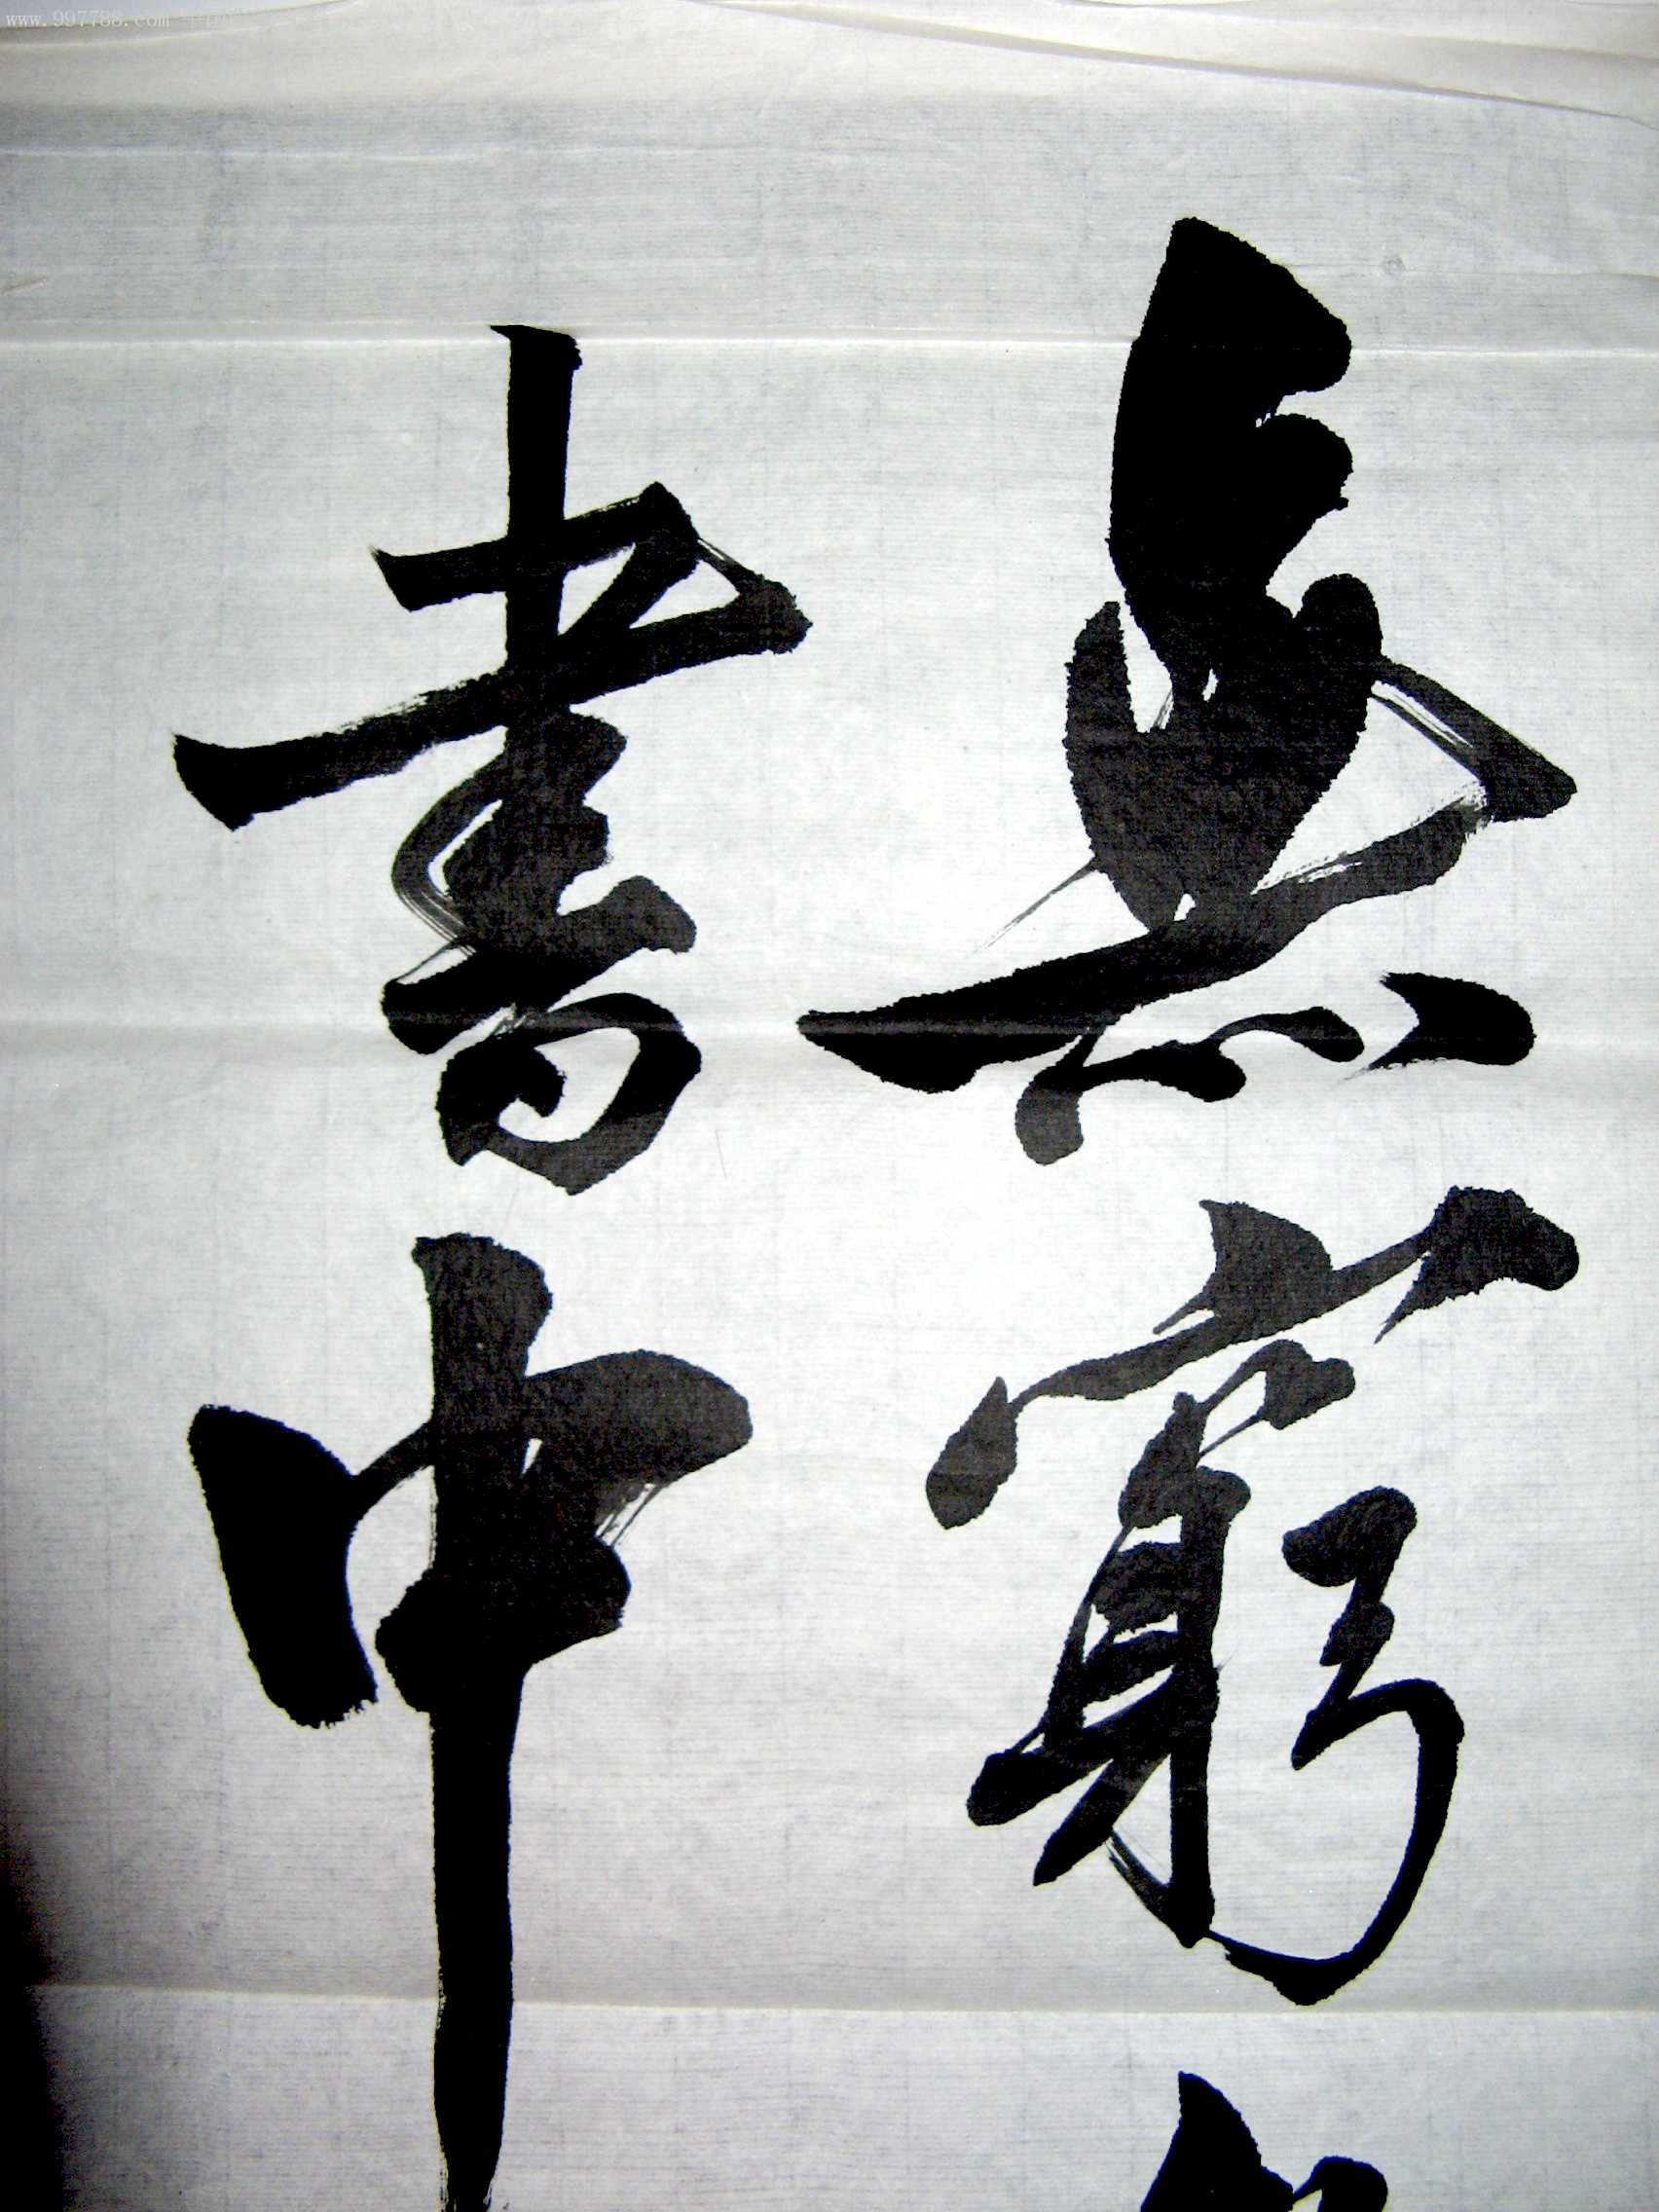 無窮
書中
www.997788.com